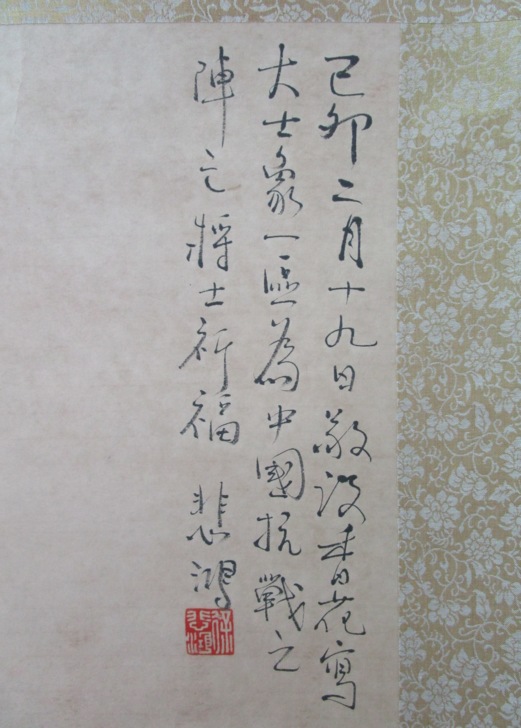 己卯二月十九日敬设香花寫
大士象一區為中國抗戰之
陣亡將士祈福 悲鴻
徐悲鴻